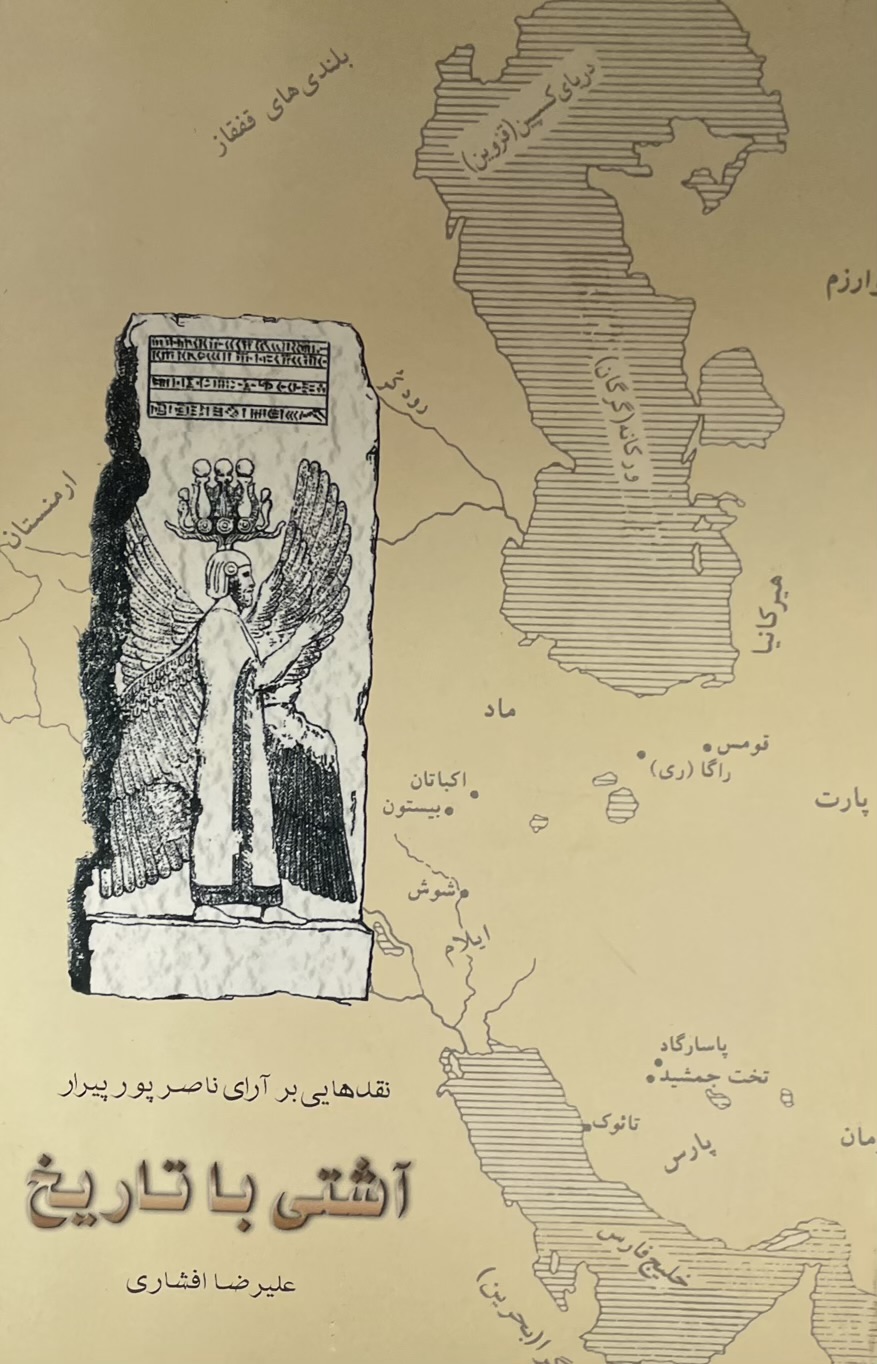 بلندی‌های قفقاز
دریای کسپین (قزوین)
رود کُر
ورکانه (گرگان)
ارمنستان
هیرکانیا
ماد
قومس
راگا (ری)
اکباتان
بیستون
پارت
شوش
ایلام
پاسارگاد
تخت جمشید
تائوک
پارس
خلیج فارس
(بحرین)
نقدهایی بر آرای ناصر پورپیرار
آشتی با تاریخ
علیرضا افشاری